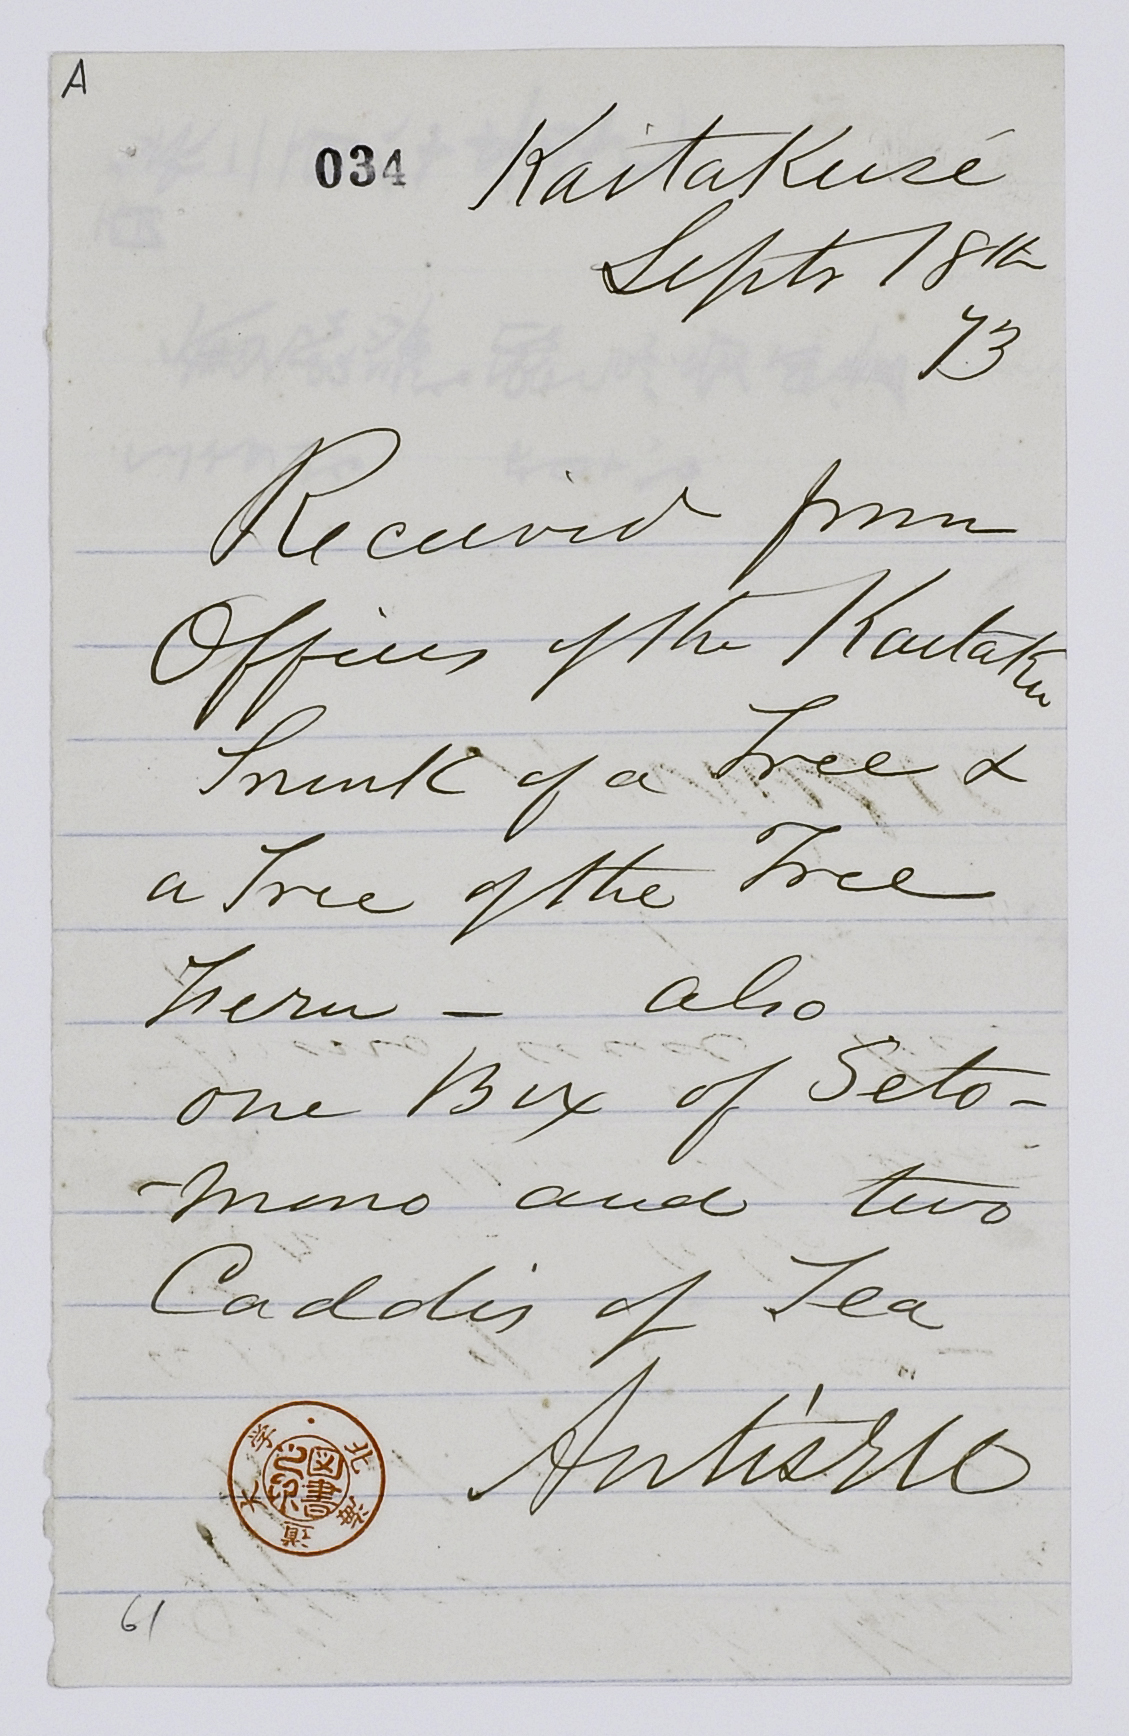 A
034
Kaitakusé
Septr 18th
73
Received from
Offices of the Kaitaku
Trunk of a Tree &
a Tree of the Tree
Fern – also
one Box of Seto-
-mono and two
Caddis of Tea
北海道大学
図書之印
61